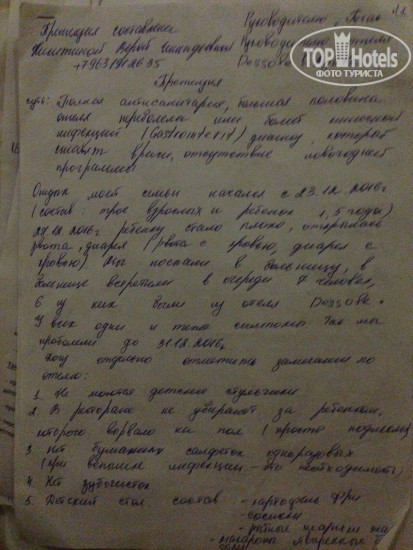 ч.1
Претензия составлена Руководителю, Пегас
Руководителю отеля
+7963 Dessole
TOPHotels
ФОТО ТУРИСТА
Претензия
суть: Полная антисанитария, большая половина
отеля переболела или болеет кишечной
инфекцией (Gastroenterit) диагноз, который
ставят врачи, отсутствие новогодней
программы
Отдых моей семьи начался с 23.12.2016г
(состав: трое взрослых и ребенок 1,5 года)
12.2016г ребенку стало плохо, открылась
рвота, диарея (рвота с кровью, диарея с
кровью) Мы поехали в больницу, в
больнице встретили в очереди 7 человек,
6 из них были из отеля Dessole.
У всех одни и те же симптомы. Так мы
проболели до 31.12.2016г
Хочу отдельно отметить замечания по
отелю:
1. Не моются детские стульчики
2. В ресторане не убирают за ребенком,
которого вырвало на пол (просто подмели)
3. Нет бумажных салфеток одноразовых
(при вспышке инфекции - это необходимость)
4. Нет зубочисток
5. Детский стол состав - картофель фри
- сосиски
- рыбные
- макароны